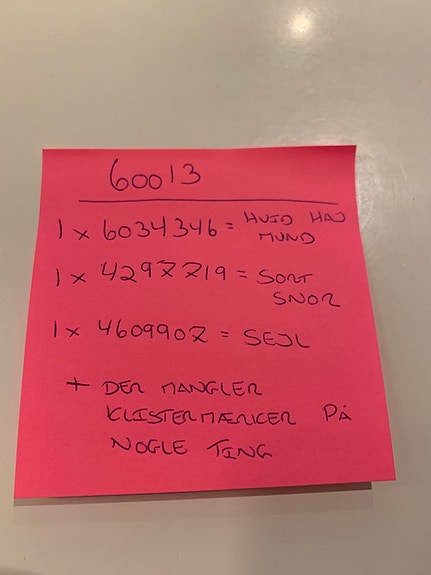 60013
1 x 6034346 = HVID HAJ
MUND
1 x 4297719 = SORT
SNOR
1 x 4609907 = SEJL
+ DER MANGLER
KLISTERMÆRKER PÅ
NOGLE TING